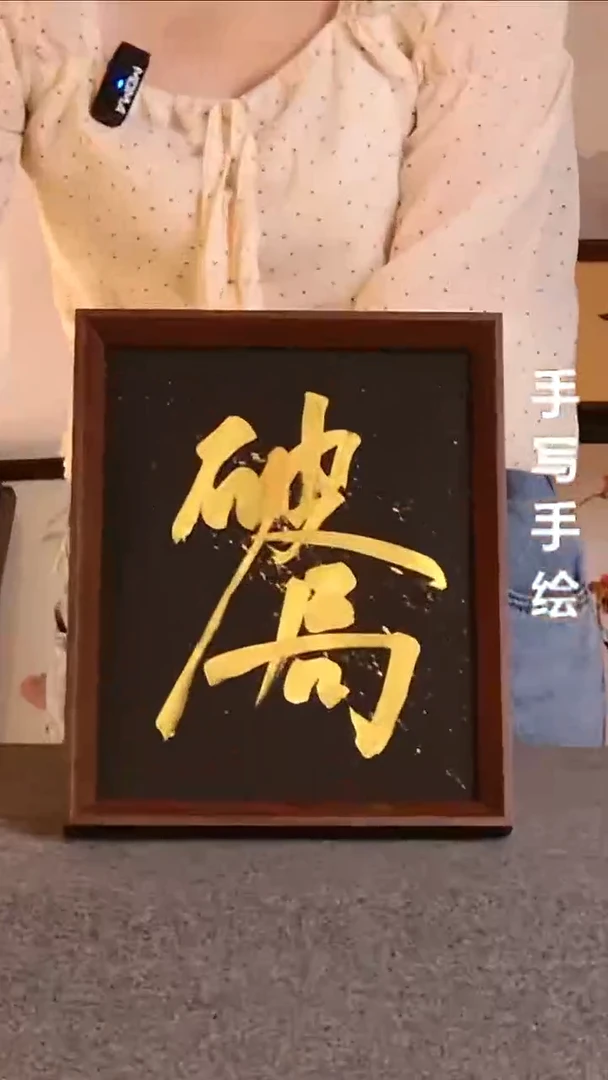 破
局
手写手绘